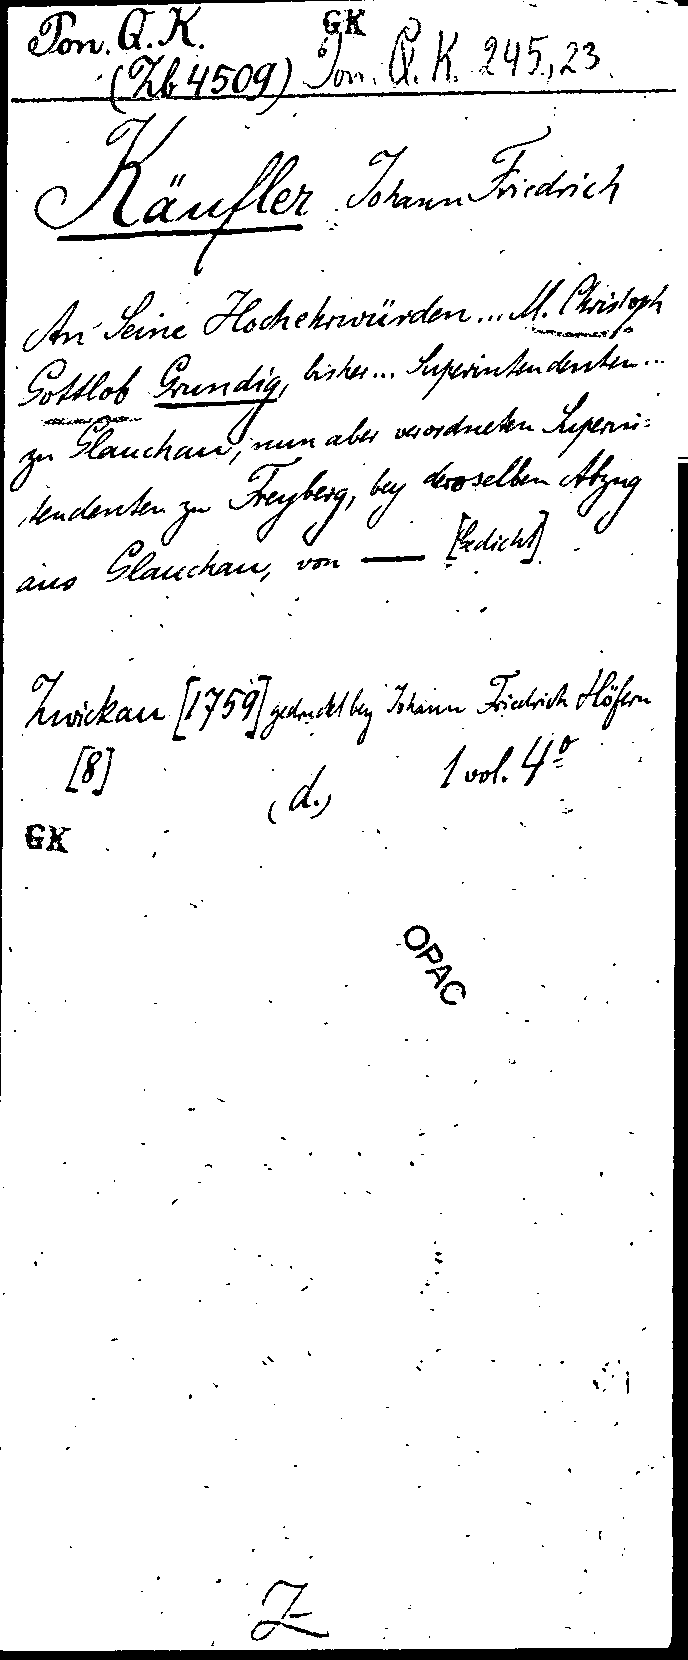 Pon. Q. K. GK
(Zb 4509) Pon. Q. K. 245, 23.
Käufler Johann Friedrich
An Seine Hochehrwürden... M. Christoph
Gottlob Grundig, bisher... Superintendenten...
zu Glauchau, nun aber verordneten Superin=
tendenten zu Freyberg, bey deroselben Abzug
aus Glauchau, von — [Gedicht].
Zwickau [1759] gedruckt bey Johann Friedrich Höfern
[8] (d.) 1 vol. 4º
GK
OPAC
Z